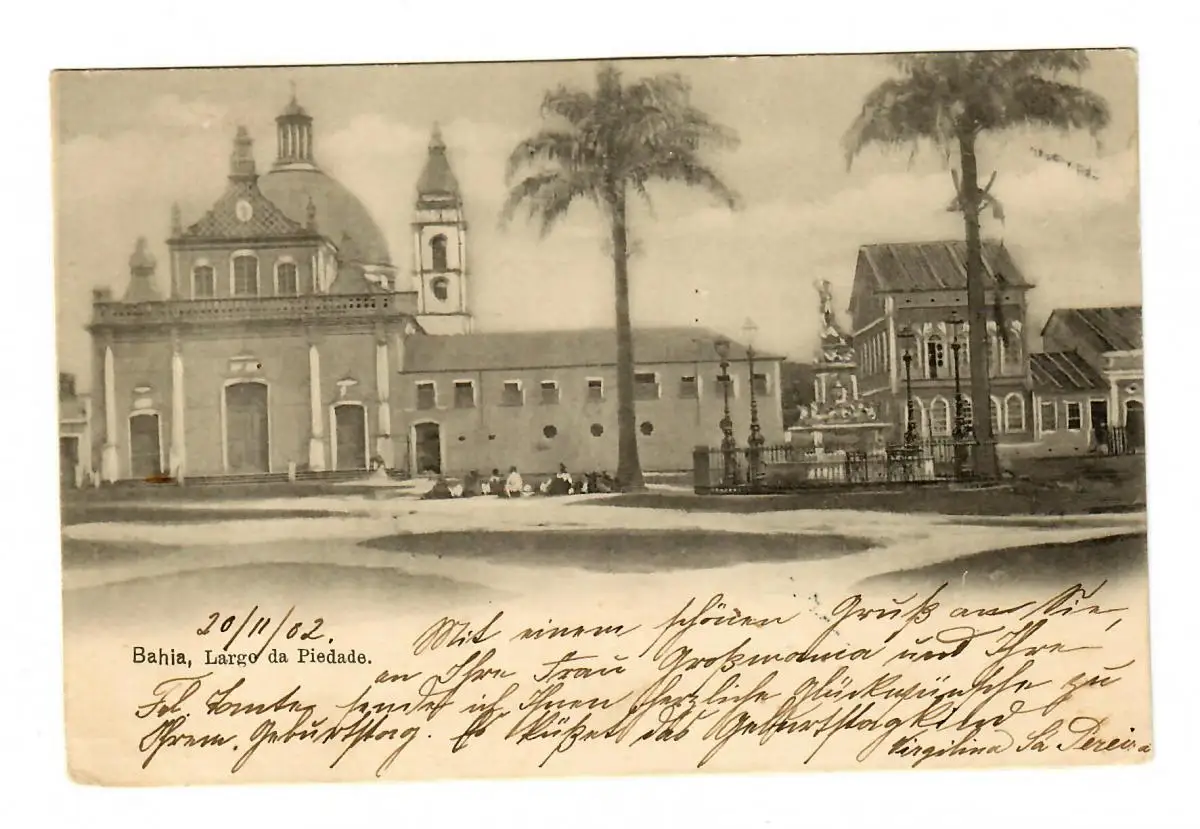 20/11/02.
Bahia, Largo da Piedade.
Mit einem schönen Gruß an Sie,
an Ihre Frau Großmama und Ihre
Frl. Tante, sende ich Ihnen herzliche Glückwünsche zu
Ihrem Geburtstag. Es küßet das Geburtstagkind
Virgilina Sá Pereira